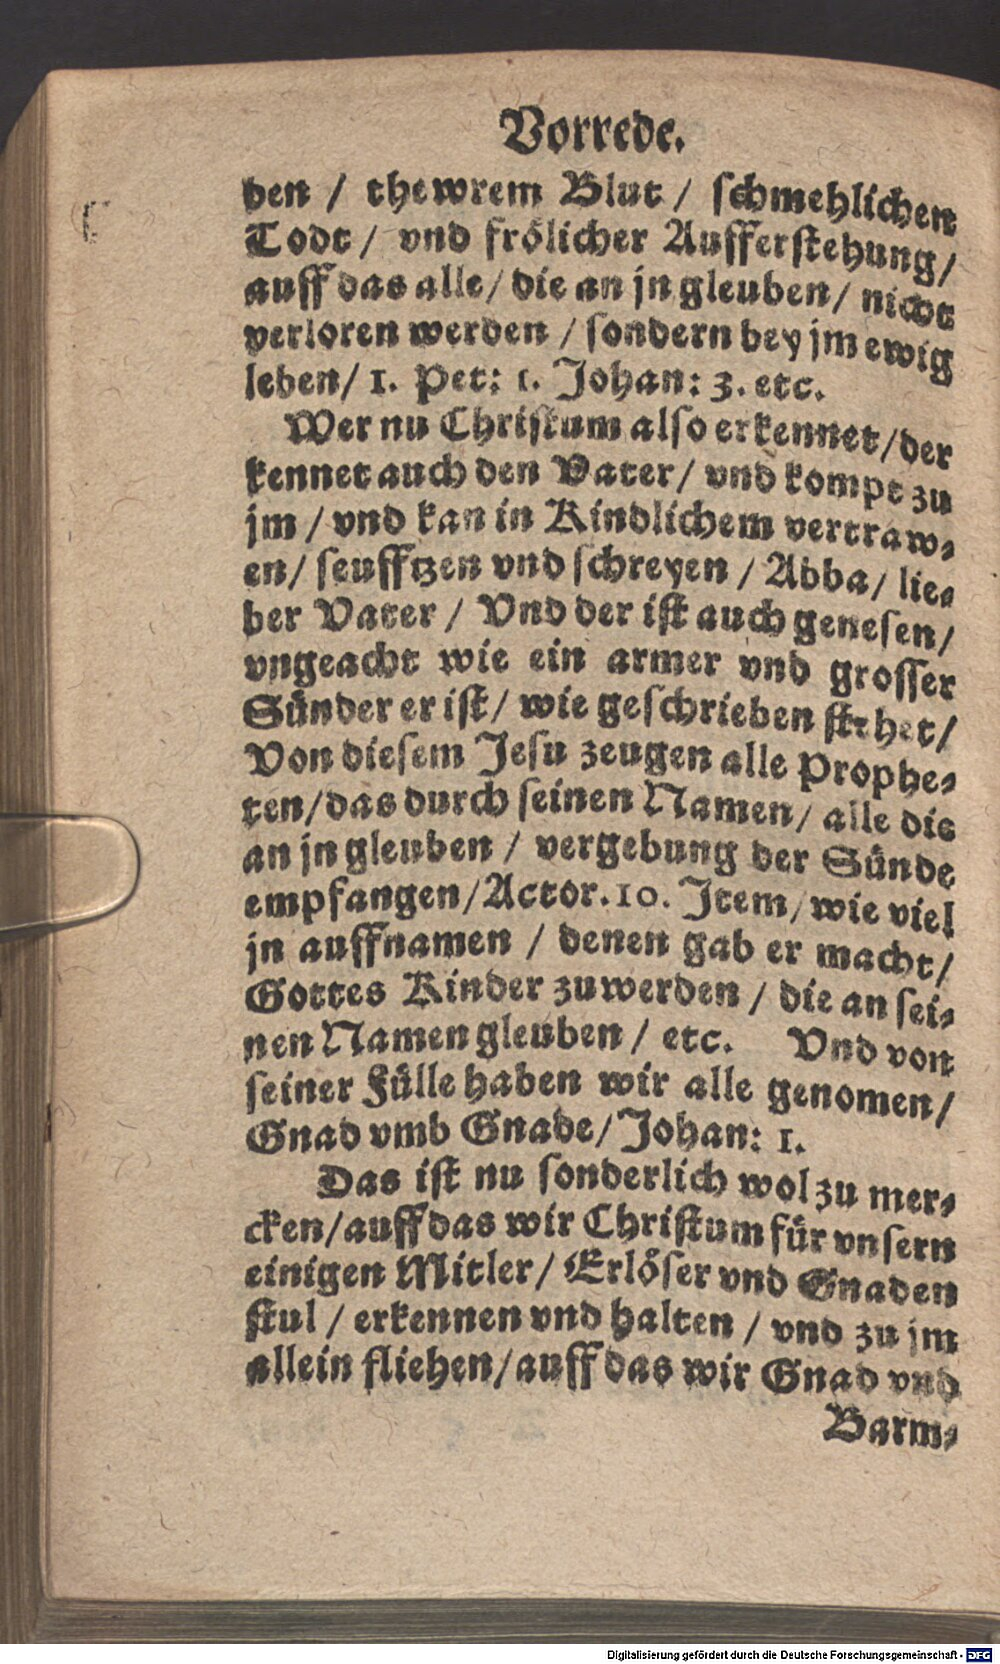 Vorrede.
den / thewrem Blut / schmehlichen
Todt / vnd frölicher Aufferstehung /
auff das alle / die an jn gleuben / nicht
verloren werden / sondern bey jm ewig
leben / 1. Pet: 1. Johan: 3. etc.
Wer nu Christum also erkennet / der
kennet auch den Vater / vnd kompt zu
jm / vnd kan in Kindlichem vertraw⸗
en / seufftzen vnd schreyen / Abba / lie⸗
ber Vater / Vnd der ist auch genesen /
vngeacht wie ein armer vnd grosser
Sünder er ist / wie geschrieben stehet /
Von diesem Jesu zeugen alle Prophe⸗
ten / das durch seinen Namen / alle die
an jn gleuben / vergebung der Sünde
empfangen / Actor. 10. Item / wie viel
jn auffnamen / denen gab er macht /
Gottes Kinder zu werden / die an sei⸗
nen Namen gleuben / etc. Vnd von
seiner Fülle haben wir alle genomen /
Gnad vmb Gnade / Johan: 1.
Das ist nu sonderlich wol zu mer⸗
cken / auff das wir Christum für vnsern
einigen Mitler / Erlöser vnd Gnaden
stul / erkennen vnd halten / vnd zu jm
allein fliehen / auff das wir Gnad vnd
Barm⸗
Digitalisierung gefördert durch die Deutsche Forschungsgemeinschaft - DFG